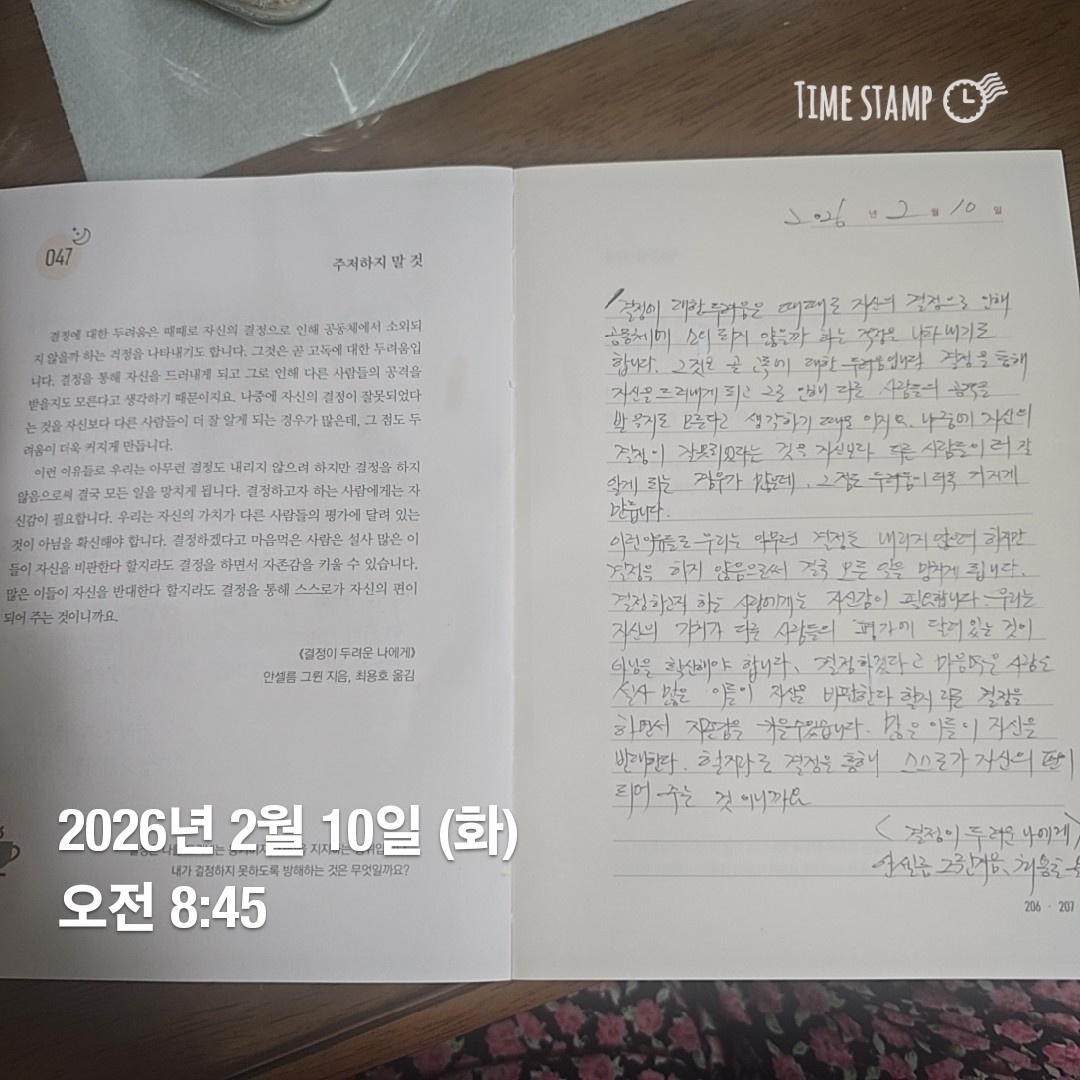 TIME STAMP
047
주저하지 말 것
결정에 대한 두려움은 때때로 자신의 결정으로 인해 공동체에서 소외되
지 않을까 하는 걱정을 나타내기도 합니다. 그것은 곧 고독에 대한 두려움입
니다. 결정을 통해 자신을 드러내게 되고 그로 인해 다른 사람들의 공격을
받을지도 모른다고 생각하기 때문이지요. 나중에 자신의 결정이 잘못되었다
는 것을 자신보다 다른 사람들이 더 잘 알게 되는 경우가 많은데, 그 점도 두
려움이 더욱 커지게 만듭니다.
이런 이유들로 우리는 아무런 결정도 내리지 않으려 하지만 결정을 하지
않음으로써 결국 모든 일을 망치게 됩니다. 결정하고자 하는 사람에게는 자
신감이 필요합니다. 우리는 자신의 가치가 다른 사람들의 평가에 달려 있는
것이 아님을 확신해야 합니다. 결정하겠다고 마음먹은 사람은 설사 많은 이
들이 자신을 비판한다 할지라도 결정을 하면서 자존감을 키울 수 있습니다.
많은 이들이 자신을 반대한다 할지라도 결정을 통해 스스로가 자신의 편이
되어 주는 것이니까요.
《결정이 두려운 나에게》
안셀름 그륀 지음, 최용호 옮김
내가 결정하지 못하도록 방해하는 것은 무엇일까요?
2026년 2월 10일 (화)
오전 8:45
2026 년 2 월 10 일
결정이 대한 두려움은 때때로 자신의 결정으로 인해
공동체에 소외 되지 않을까 하는 걱정은 나타내기로
합니다. 그것은 곧 에 대한 두려움입니다 결정을 통해
자신을 드러내게 되고 그로 인해 다른 사람들의 공격을
받을지도 모른다고 생각하기 때문 이지요. 나중에 자신의
결정이 잘못되었다는 것을 자신보다 다른 사람들이 더 잘
알게 되는 경우가 많은데, 그 점도 두려움이 더욱 커지게
만듭니다.
이런 이유들로 우리는 아무런 결정도 내리지 않으려 하지만
결정을 하지 않음으로써 결국 모든 일을 망치게 됩니다.
결정하고자 하는 사람에게는 자신감이 필요합니다. 우리는
자신의 가치가 다른 사람들의 평가에 달려 있는 것이
아님을 확신해야 합니다. 결정하겠다고 마음먹은 사람은
설사 많은 이들이 자신을 비판한다 할지라도 결정을
하면서 자존감을 키울수있습니다. 많은 이들이 자신을
반대한다. 할지라도 결정을 통해 스스로가 자신의 편이
되어 주는 것 이니까요
〈 결정이 두려운 나에게 〉
안셀름 그륀지음, 최용호
206 · 207